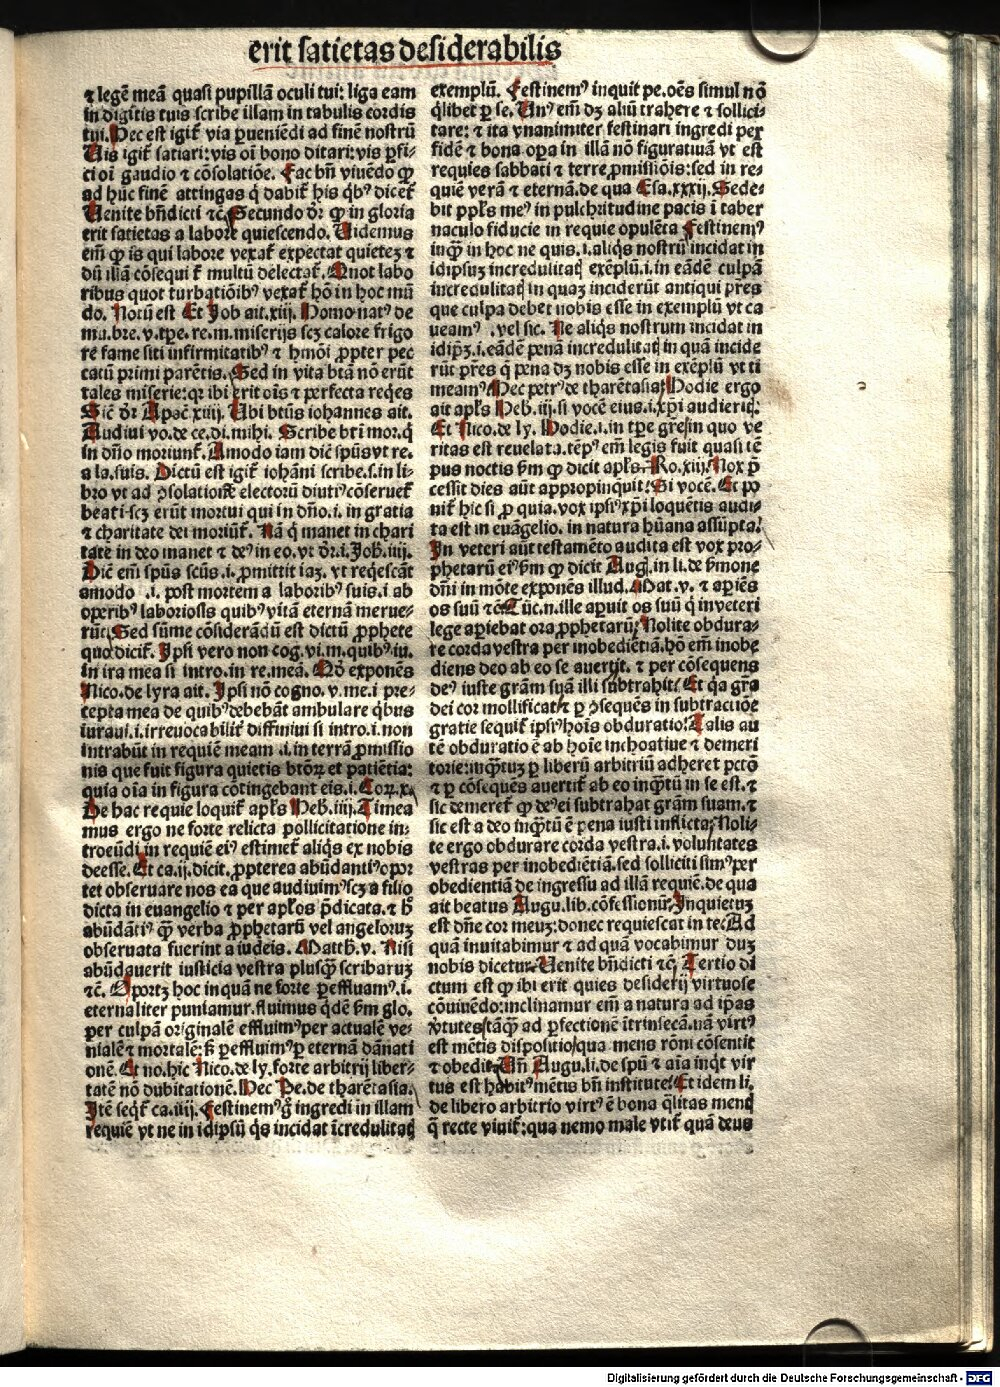 erit satietas desiderabilis
⁊ legē meā quasi pupillā oculi tui: liga eam
in digitis tuis scribe illam in tabulis cordis
tui. Hec est igit̄ via ꝑueniēdi ad finē nostrū
Uis igit̄ satiari: vis oī bono ditari: vis ꝑfi-
ci oī gaudio ⁊ cōsolatiōe. Fac bn̄ viuēdo ꝙ
ad hūc finē attingas q̇ dabit̄ his q̇bꝰ dicet̄
Uenite bn̄dicti ⁊c̄. Secundo dr̄ ꝙ in gloria
erit satietas a labore quiescendo. Uidemus
em̄ ꝙ is qui labore vexat̄ expectat quietez ⁊
dū illā cōsequi t̄ multū delectat̄. Quot labo
ribus quot turbatiōibꝰ vexat̄ hō in hoc mū
do. Notū est Et Job ait.xiiij. Homo natꝰ de
mu.bre.v.tp̄e.re.m.miserijs scz calore frigo
re fame siti infirmitatibꝰ ⁊ hmōi ꝓpter pec
catū primi parētis. Sed in vita btā nō erūt
tales miserie: qr ibi erit oīs ⁊ perfecta reqes
Sic̄ dr̄ Apoc̄ xiiij. Ubi btūs iohannes ait.
Audiui vo.de ce.di.mihi. Scribe bti mor.q̇
in dn̄o moriunt̄. Amodo iam dic̄ spūs vt re.
a la.suis. Dictū est igit̄ iohāni scribe.s.in li-
bro vt ad ꝯsolationē electorū diutiꝰ cōseruet̄
beati scz erūt mortui qui in dn̄o.i. in gratia
⁊ charitate dei moriūt̄. Nā q̇ manet in chari
tate in deo manet ⁊ deꝰ in eo. vt dr̄.i. Joh̄.iiij.
Dic̄ em̄ spūs scūs.i. ꝓmittit iaz. vt reqescāt
amodo .i. post mortem a laboribꝰ suis.i ab
operibꝰ laboriosis quibꝰ vitā eternā merue-
rūt. Sed sūme cōsiderādū est dictū ꝓphete
quo dicit̄. Ipsi vero non cog.vi.m.quibꝰ iu.
in ira mea si intro.in re.meā. Qd̄ exponēs
Nico.de lyra ait. Ipsi nō cogno.v.me.i pre-
cepta mea de quibꝰ debebāt ambulare q̇bus
iuraui.i.irreuocabilit̄ diffiniui si intro.i.non
intrabūt in requiē meam .i. in terrā ꝓmissio
nis que fuit figura quietis btōꝝ et patiētia:
quia oīa in figura cōtingebant eis.i. Coꝝ.x.
De hac requie loquit̄ apl̄s Heb.iiij. Timea
mus ergo ne forte relicta pollicitatione in-
troeūdi in requiē eiꝰ estimet̄ aliq̇s ex nobis
deesse. Et ca.ij.dicit. ꝓpterea abūdantiꝰ opor
tet obseruare nos ea que audiuimꝰ scz a filio
dicta in euangelio ⁊ per apl̄os p̄dicata.⁊ h̄
abūdātiꝰ ꝙ̄ verba ꝓphetarū vel angeloruz
obseruata fuerint a iudeis. Matth̄.v. Nisi
abūdauerit iusticia vestra plusꝙ̄ scribaruz
⁊c̄. Oportz hoc inquā ne forte ꝑeffluamꝰ.i.
eternaliter puniamur. fluimus q̇dē ẜm glo.
per culpā originalē effluimꝰ per actualē ve-
nialē ⁊ mortalē: ẜ ꝑeffluimꝰ ꝑ eternā dānati
onē. Et no.hic Nico.de ly.forte arbitrij liber-
tatē nō dubitationē. Hec Pe.de tharētasia.
Itē seqt̄ ca.iiij. Festinemꝰ g̊ ingredi in illam
requiē vt ne in idipsū q̇s incidat īcredulitatꝭ
exemplū. Festinemꝰ inquit pe. oēs simul nō
q̇libet ꝑ se. Unꝰ em̄ dz aliū trahere ⁊ sollici-
tare: ⁊ ita vnanimiter festinari ingredi per
fidē ⁊ bona oꝑa in illā nō figuratiuā vt est
requies sabbati ⁊ terre ꝓmissiōis: sed in re-
quiē verā ⁊ eternā. de qua Esa.xxxij. Sede-
bit ppl̄s meꝰ in pulchritudine pacis ī taber
naculo fiducie in requie opulēta Festinemꝰ
inꝙ̄ in hoc ne quis.i.aliq̇s nostrū incidat in
idipsuz incredulitatꝭ exēplū.i.in eādē culpā
incredulitatꝭ in quaz inciderūt antiqui pr̄es
que culpa debet nobis esse in exemplū vt ca
ueamꝰ .vel sic. Ne aliq̇s nostrum incidat in
idip̄z.i.eādē penā incredulitatꝭ in quā incide
rūt pr̄es q̇ pena dz nobis esse in exēplū vt ti
meamꝰ Hec petrꝰ de tharētasia. Hodie ergo
ait apl̄s Heb.iij.si vocē eius.i.xp̄i audieritꝭ.
Et Nico.de ly. Hodie.i.in tp̄e gr̄e in quo ve
ritas est reuelata. tēpꝰ em̄ legis fuit quasi tē
pus noctis ẜm ꝙ dicit apl̄s. Ro.xiij. Nox p̄
cessit dies aūt appropinquit. Si vocē. Et po
nit̄ hic si ꝓ quia. vox ipsiꝰ xp̄i loquētis audi-
ta est in euāgelio. in natura hūana assūpta.
In veteri aūt testamēto audita est vox pro-
phetarū eiꝰ ẜm ꝙ dicit Aug.in li.de ẜmone
dn̄i in mōte exponēs illud. Mat.v. ⁊ apiēs
os suū ⁊c̄. Tūc.n.ille apuit os suū q̇ inveteri
lege apiebat ora ꝓphetarū. Nolite obdura-
re corda vestra per inobediētiā. hō em̄ inobe
diens deo ab eo se auertit. ⁊ per cōsequens
deꝰ iuste gr̄am suā illi subtrahit. Et q̇a gr̄a
dei cor mollificat̄ ꝑ ꝯsequēs in subtractiōe
gratie sequit̄ ipsiꝰ hoīs obduratio. Talis au
tē obduratio ē ab hoīe inchoatiue ⁊ demeri
torie: inꝙ̄tuz ꝑ liberū arbitriū adheret pctō
⁊ ꝑ cōsequēs auertit̄ ab eo inꝙ̄tū in se est.⁊
sic demeret̄ ꝙ deꝰ ei subtrahat gr̄am suam.⁊
sic est a deo inꝙ̄tū ē pena iusti inflicta. Noli-
te ergo obdurare corda vestra.i. voluntates
vestras per inobediētiā. sed solliciti simꝰ per
obedientiā de ingressu ad illā requiē. de qua
ait beatus Augu.lib.cōfessionū. Inquietuz
est dn̄e cor meuz: donec requiescat in te. Ad
quā inuitabimur ⁊ ad quā vocabimur duz
nobis dicetur. Uenite bn̄dicti ⁊c̄. Tertio di
ctum est ꝙ ibi erit quies desiderij virtuose
cōviuēdo: inclinamur em̄ a natura ad ip̄as
v̇tutes tāꝙ̄ ad ꝑfectionē ītrinsecā. nā virtꝰ
est mētis dispositio qua mens rōni cōsentit
⁊ obedit. Un̄ Augu.li.de spū ⁊ aīa inqt vir
tus est habitꝰ mētis bn̄ institute. Et idem li.
de libero arbitrio virtꝰ ē bona q̄litas mentꝭ
q̄ recte viuit̄: qua nemo male vtit̄ quā deus
Digitalisierung gefördert durch die Deutsche Forschungsgemeinschaft - DFG